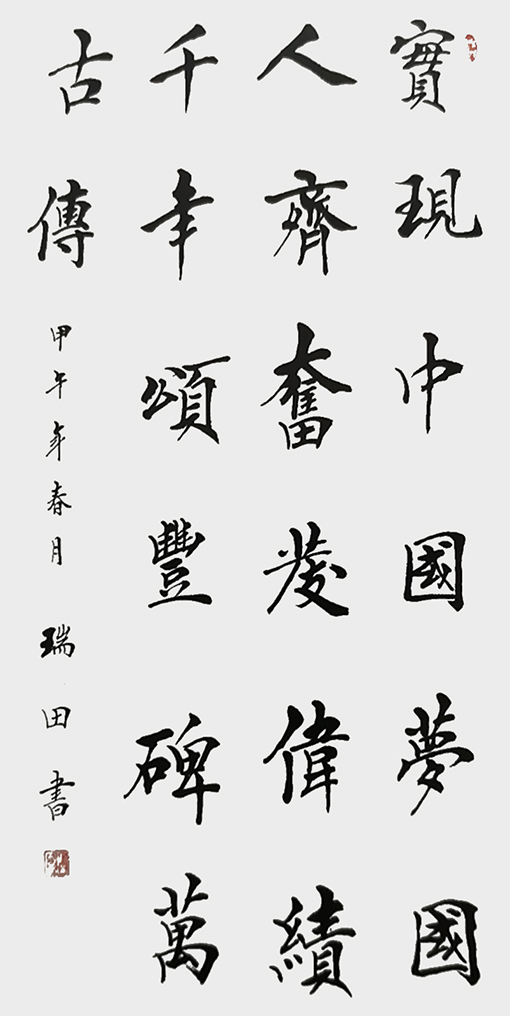 實現中國夢國
人齊奮發偉績
千年頌豐碑萬
古傳
甲午年春月 瑞田書